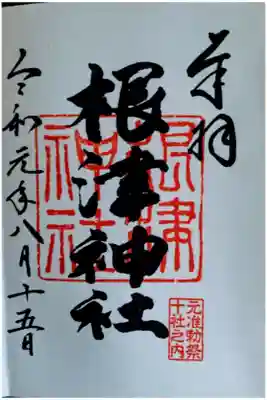 奉拝
根津神社
令和元年八月十五日
根津神社
元准勅祭
十社之内